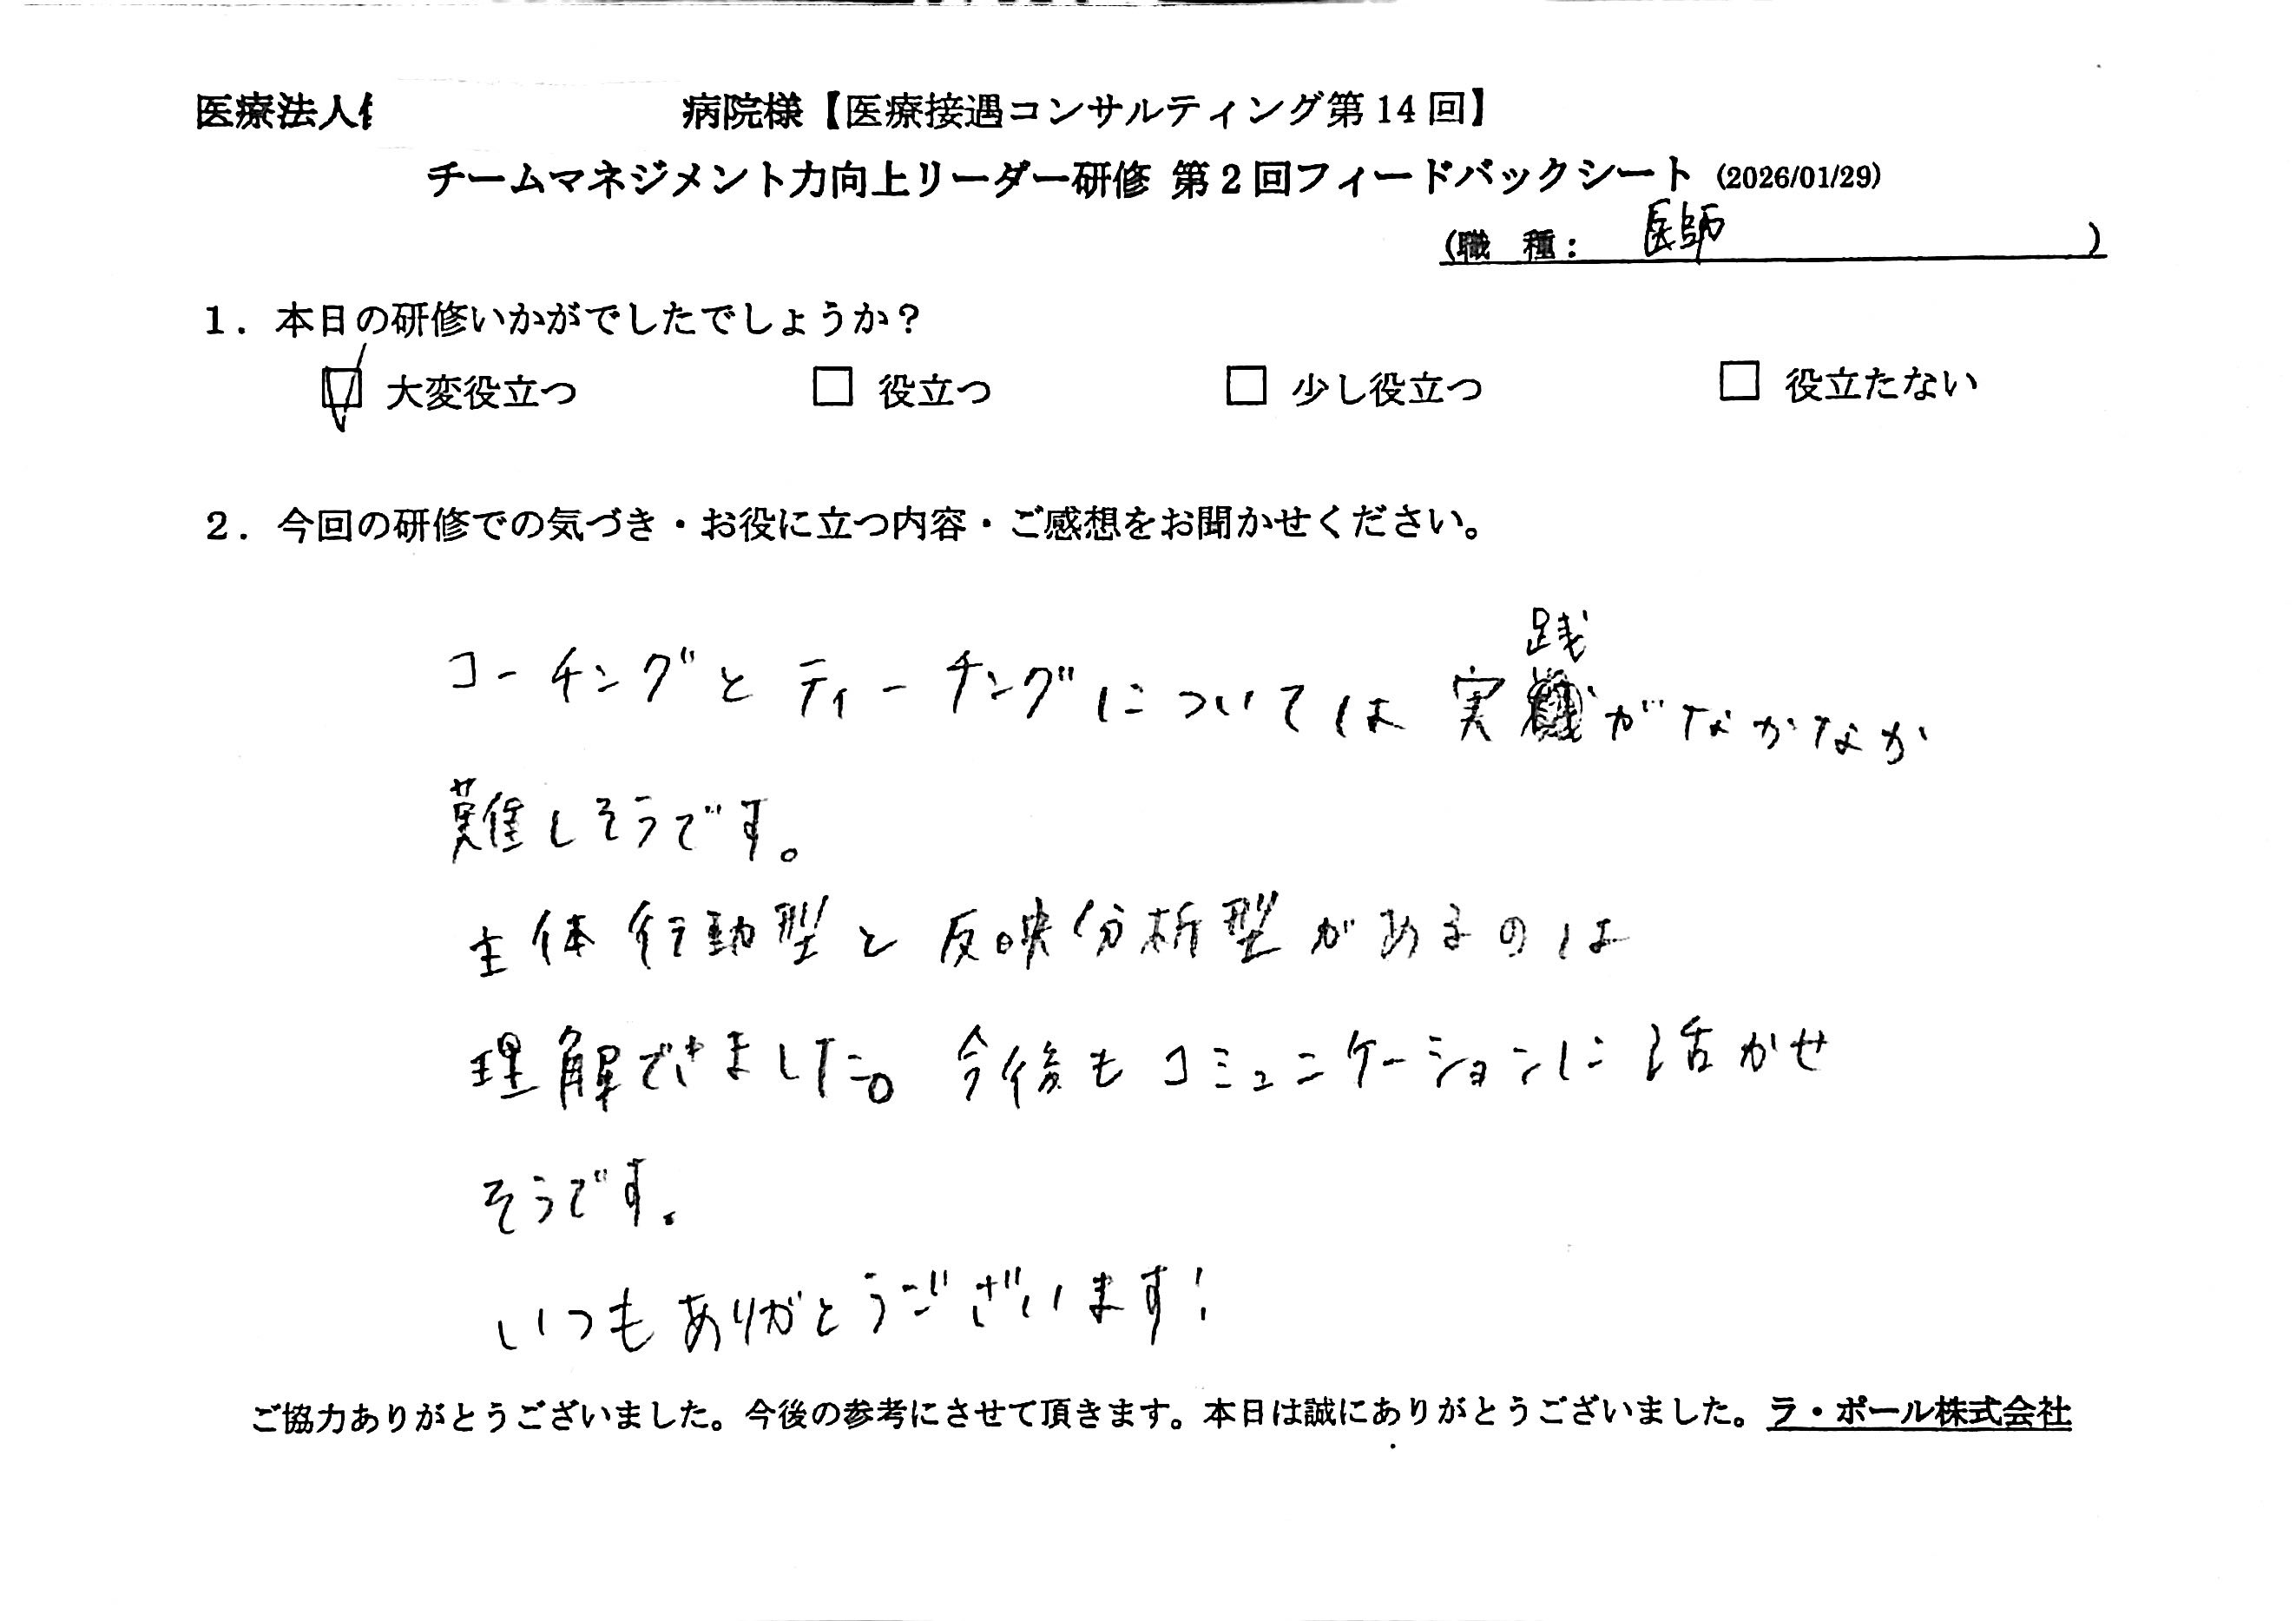 医療法人 病院様【医療接遇コンサルティング第14回】
チームマネジメント力向上リーダー研修 第2回フィードバックシート (2026/01/29)
(職 種： 医師 )
1．本日の研修いかがでしたでしょうか？
☑ 大変役立つ □ 役立つ □ 少し役立つ □ 役立たない
2．今回の研修での気づき・お役に立つ内容・ご感想をお聞かせください。
コーチングとティーチングについては実践がなかなか
難しそうです。
主体行動型と反映分析型があるのは
理解できました。今後もコミュニケーションに活かせ
そうです。
いつもありがとうございます！
ご協力ありがとうございました。今後の参考にさせて頂きます。本日は誠にありがとうございました。ラ・ポール株式会社